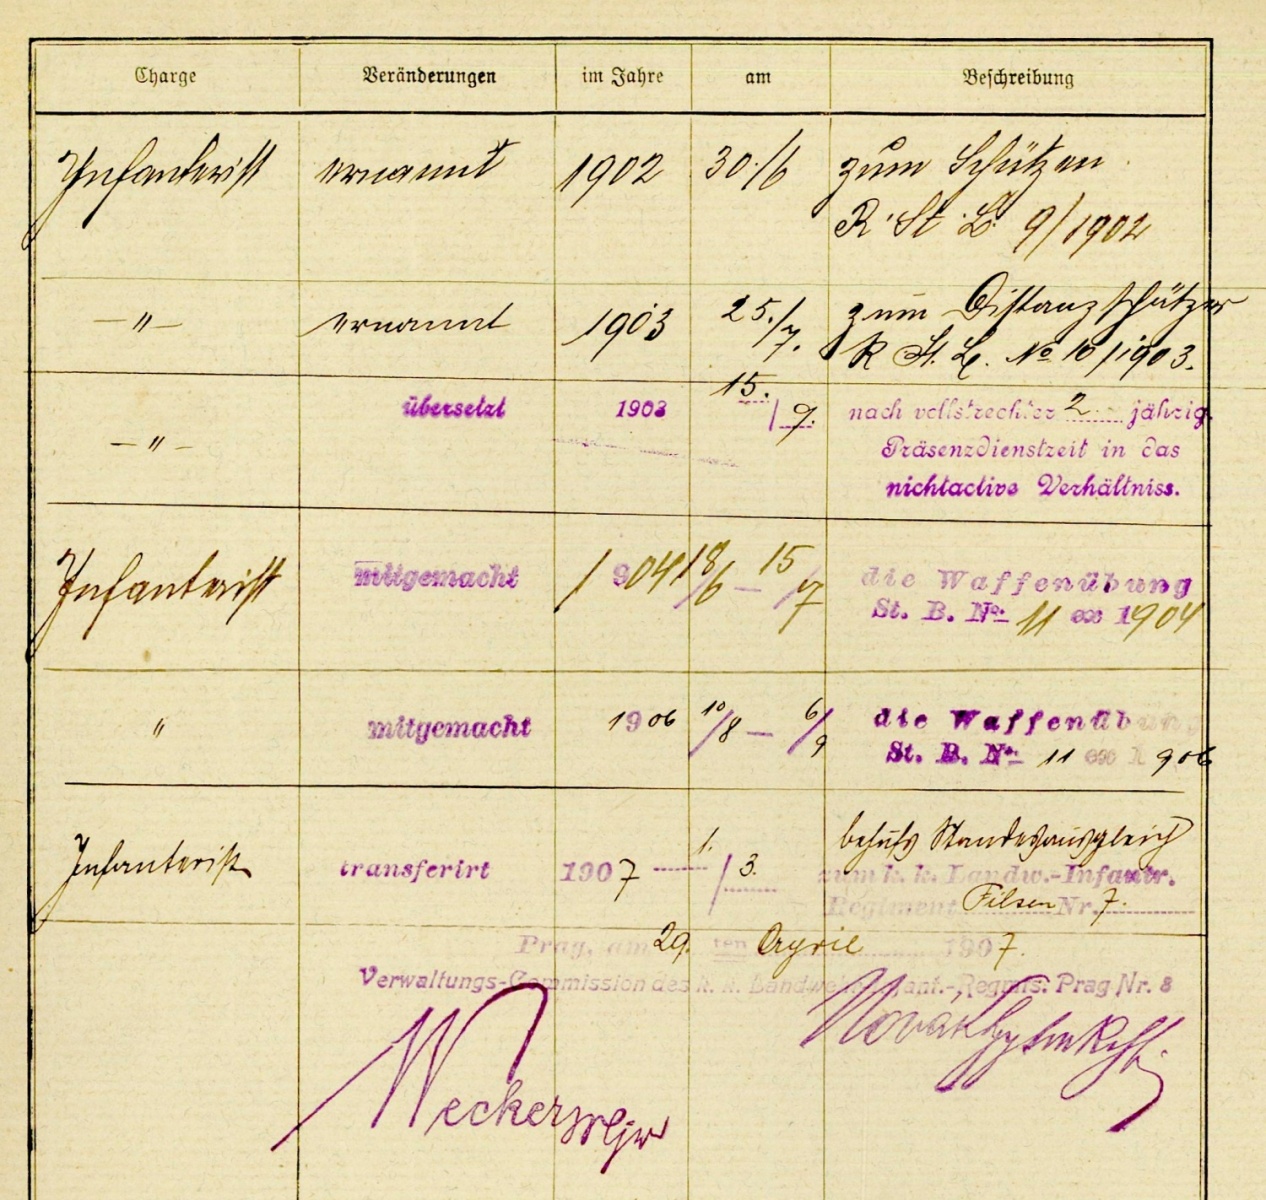 Charge Veränderungen im Jahre am Beschreibung
Infanterist ernannt 1902 30./6 zum Schützen
R. St. B. 9/1902
–"– ernannt 1903 25./7. zum Distanzschützen
R St. B. No 10/1903.
–"– übersetzt 1903 15./9. nach vollstreckter 2 jährig.
Präsenzdienstzeit in das
nichtactive Verhältniss.
Infanterist mitgemacht 1904 18/6 – 15/7 die Waffenübung
St. B. No. 11 ex 1904
" mitgemacht 1906 10/8 – 6/9 die Waffenübung
St. B. No. 11 ex 1906
Infanterist transferirt 1907 1./3. behufs Standesausgleich
zum k. k. Landw.-Infantr.
Regiment Pilsen Nr. 7.
Prag, am 29. ten April 1907.
Verwaltungs-Commission des k. k. Landwehr-Infant.-Regmts. Prag Nr. 8
Novak
Wecker